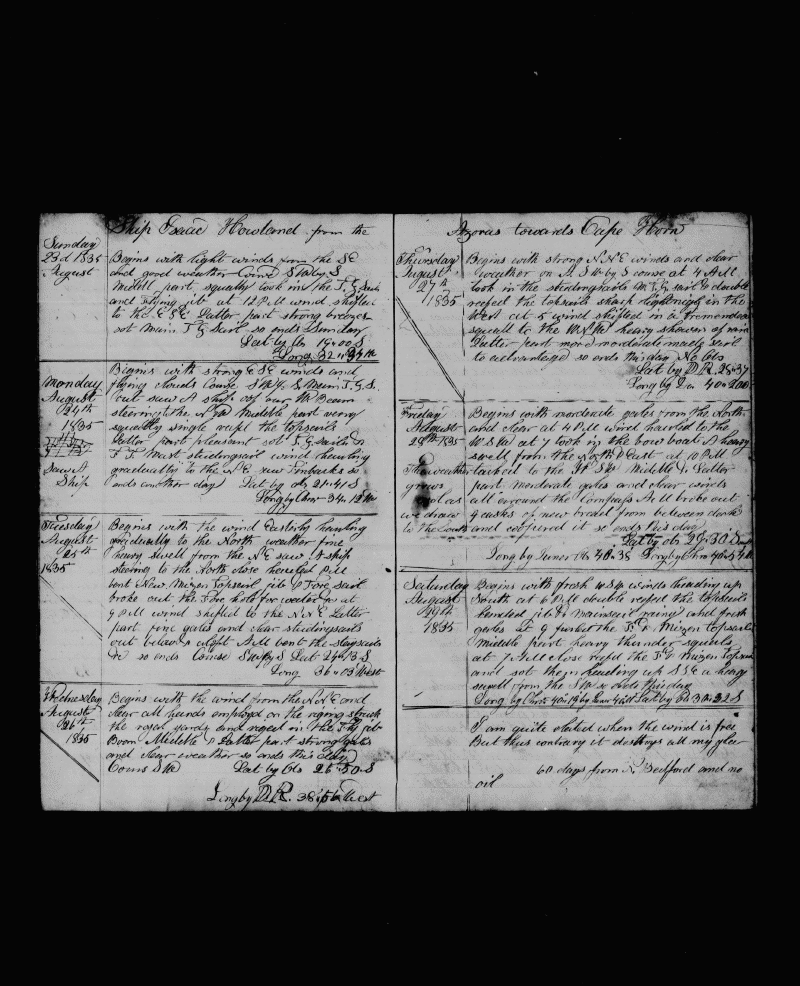 Ship Isaac Howland from the
Sunday
23d 1835
August
Begins with light winds from the SE
and good weather Course SW by S
Middle part squally took in the T.G. Sails
and Flying jib at 12 PM wind shifted
to the ESE Latter part strong breezes
set Main T G Sail so ends Sunday
Lat by Ob 19=00 S
Long 32 W
Monday
August
24th
1835
Saw A
Ship
Begins with strong E SE winds and
flying clouds Course SW by S Main T.G.S.
out saw A ship off our W Beam
steering the N Middle part verry
squally single reeft the topsails
Latter part pleasant set T.G. sails &
F T Mast studingsail wind hawling
gradually to the N E saw Finbacks so
ends another day Lat by ob 21=41 S
Long by Chro 34=12 W
Tuesday
August
25th
1835
Begins with the wind Easterly hawling
gradually to the North weather fine
heavy swell from the N E saw A ship
steering to the North close hauled PM
bent New Mizen topsail jib & Fore sail
broke out the Fore hold for water at
9 PM wind shifted to the N N E Latter
part fine gales and clear studingsails
out below & aloft AM bent the staysails
so ends Course SW by S Lat 24=13 S
Long 36=03 West
Wednesday
August
26th
1835
Begins with the wind from the N N E and
clear all hands employed on the riging struck
the royal yards and riged in the Fly jib
Boom Middle & Latter part strong gales
and clear weather so ends this day
Course SW Lat by Obs 26=50 S
Long by D.R. 38 West
Azores towards Cape Horn
Thursday
August
27th
1835
Begins with strong N N E winds and clear
weather on A SW by S course at 4 AM
took in the studingsails M T G sail & double
reefed the topsails sharp lightning in the
West at 5 wind shifted in a tremendous
squall to the heavy showers of rain
Latter part more moderate made sail
to advantage so ends this day No Obs
Lat by D R. 28=37
Long by D R 40=200
Friday
August
28th 1835
The weather
grows
cool as
we draw
to the South
Begins with moderate gales from the North
and clear at 4 PM wind hauled to the
W S W at 7 took in the bow boat A heavy
swell from the North & East at 10 PM
tacked to the Middle & Latter
part Moderate gales and clear winds
all around the Compass AM broke out
9 casks of new bread from between decks
and coopered it so ends this day
Lat by ob 29=30 South
Long by Lunar Obs 40=38 Long by Chro
Saturday
August
29th
1835
Begins with fresh W SW winds heading up
South at 6 PM double reefed the topsails
handed jib & mainsail raind and fresh
gales at 9 furled the F & Mizen topsails
Middle part heavy thunder squals
at 7 AM close reefd the F & Mizen topsail
and set them heading up S S E a heavy
swell from the SW so ends this day
Long by Chro by Lunar Lat by Ob 32 S
I am quite elated when the wind is free
But thus contrary it destroys all my glee
60 days from N. Bedford and no
oil